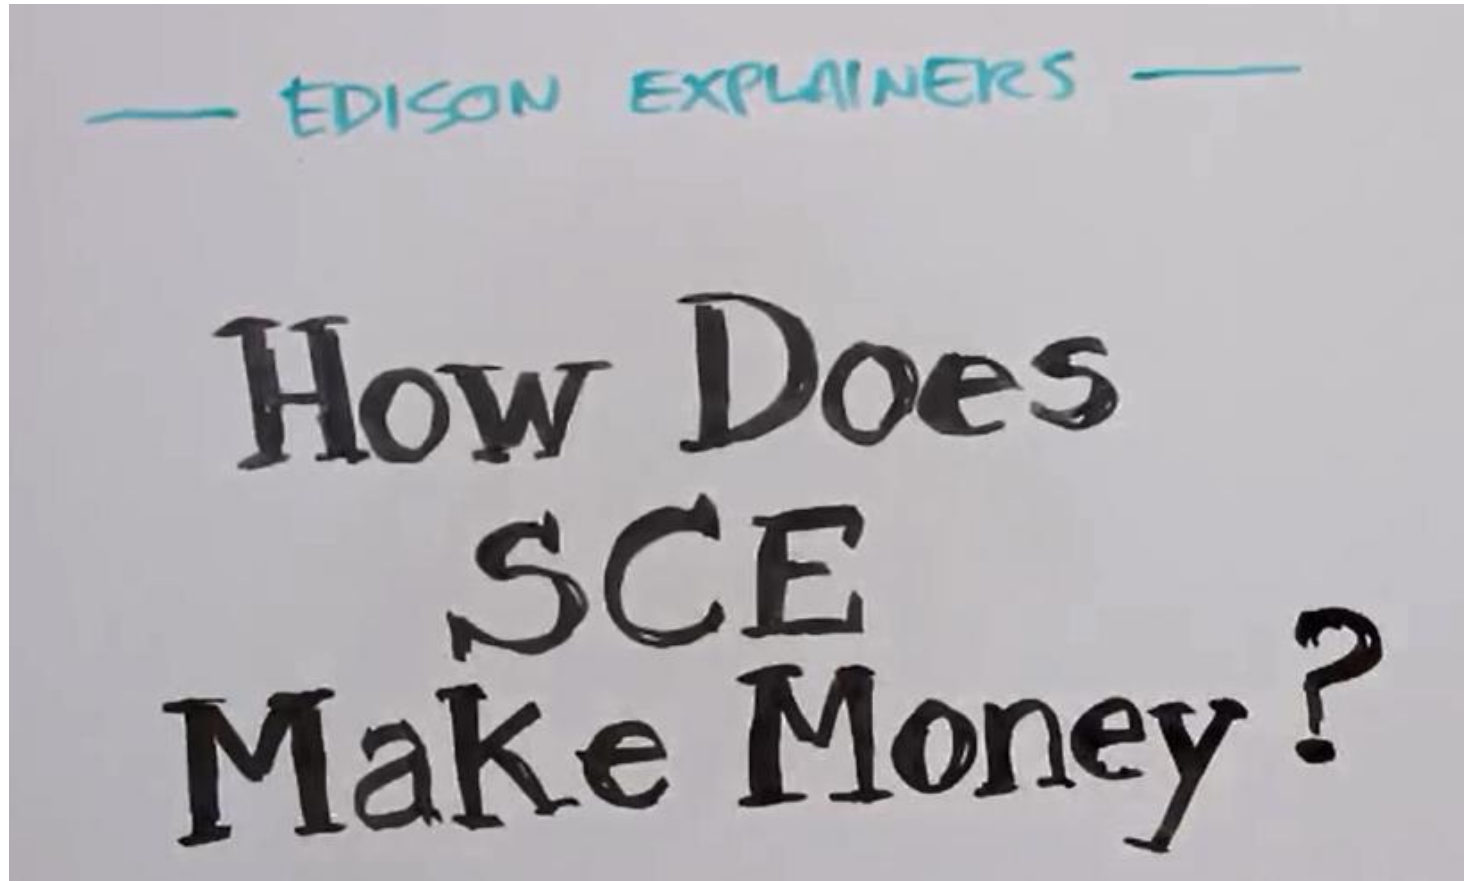 — EDISON EXPLAINERS —
How Does
SCE
Make Money?